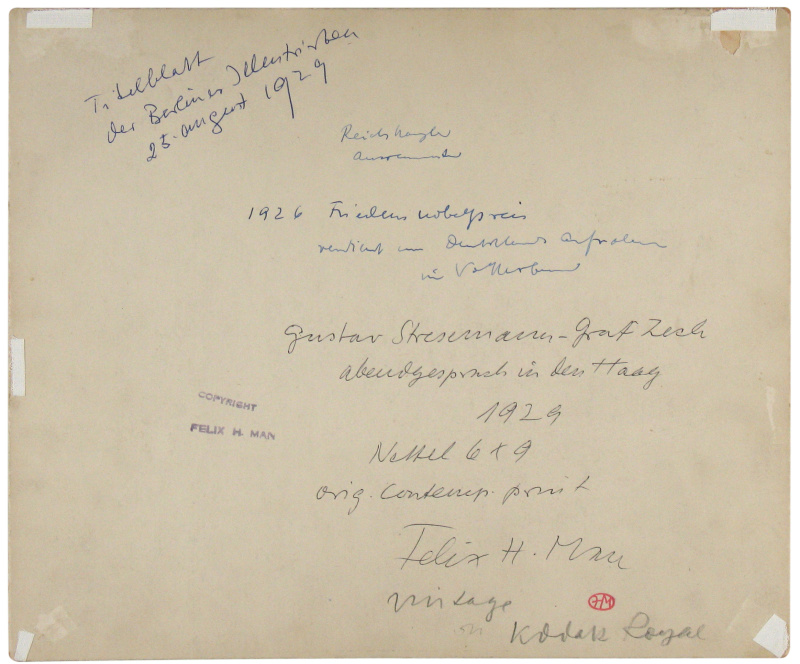 Titelblatt
der Berliner Illustrirten
25. August 1929
Reichskanzler
Aussenminister
1926 Friedensnobelpreis
verdient um Deutschlands Aufnahme
in Völkerbund
Gustav Stresemann - Graf Zech
abendgespräch in den Haag
1929
COPYRIGHT
FELIX H. MAN
Nettel 6x9
orig. contemp. print
Felix H. Man
vintage
on Kodak Royal